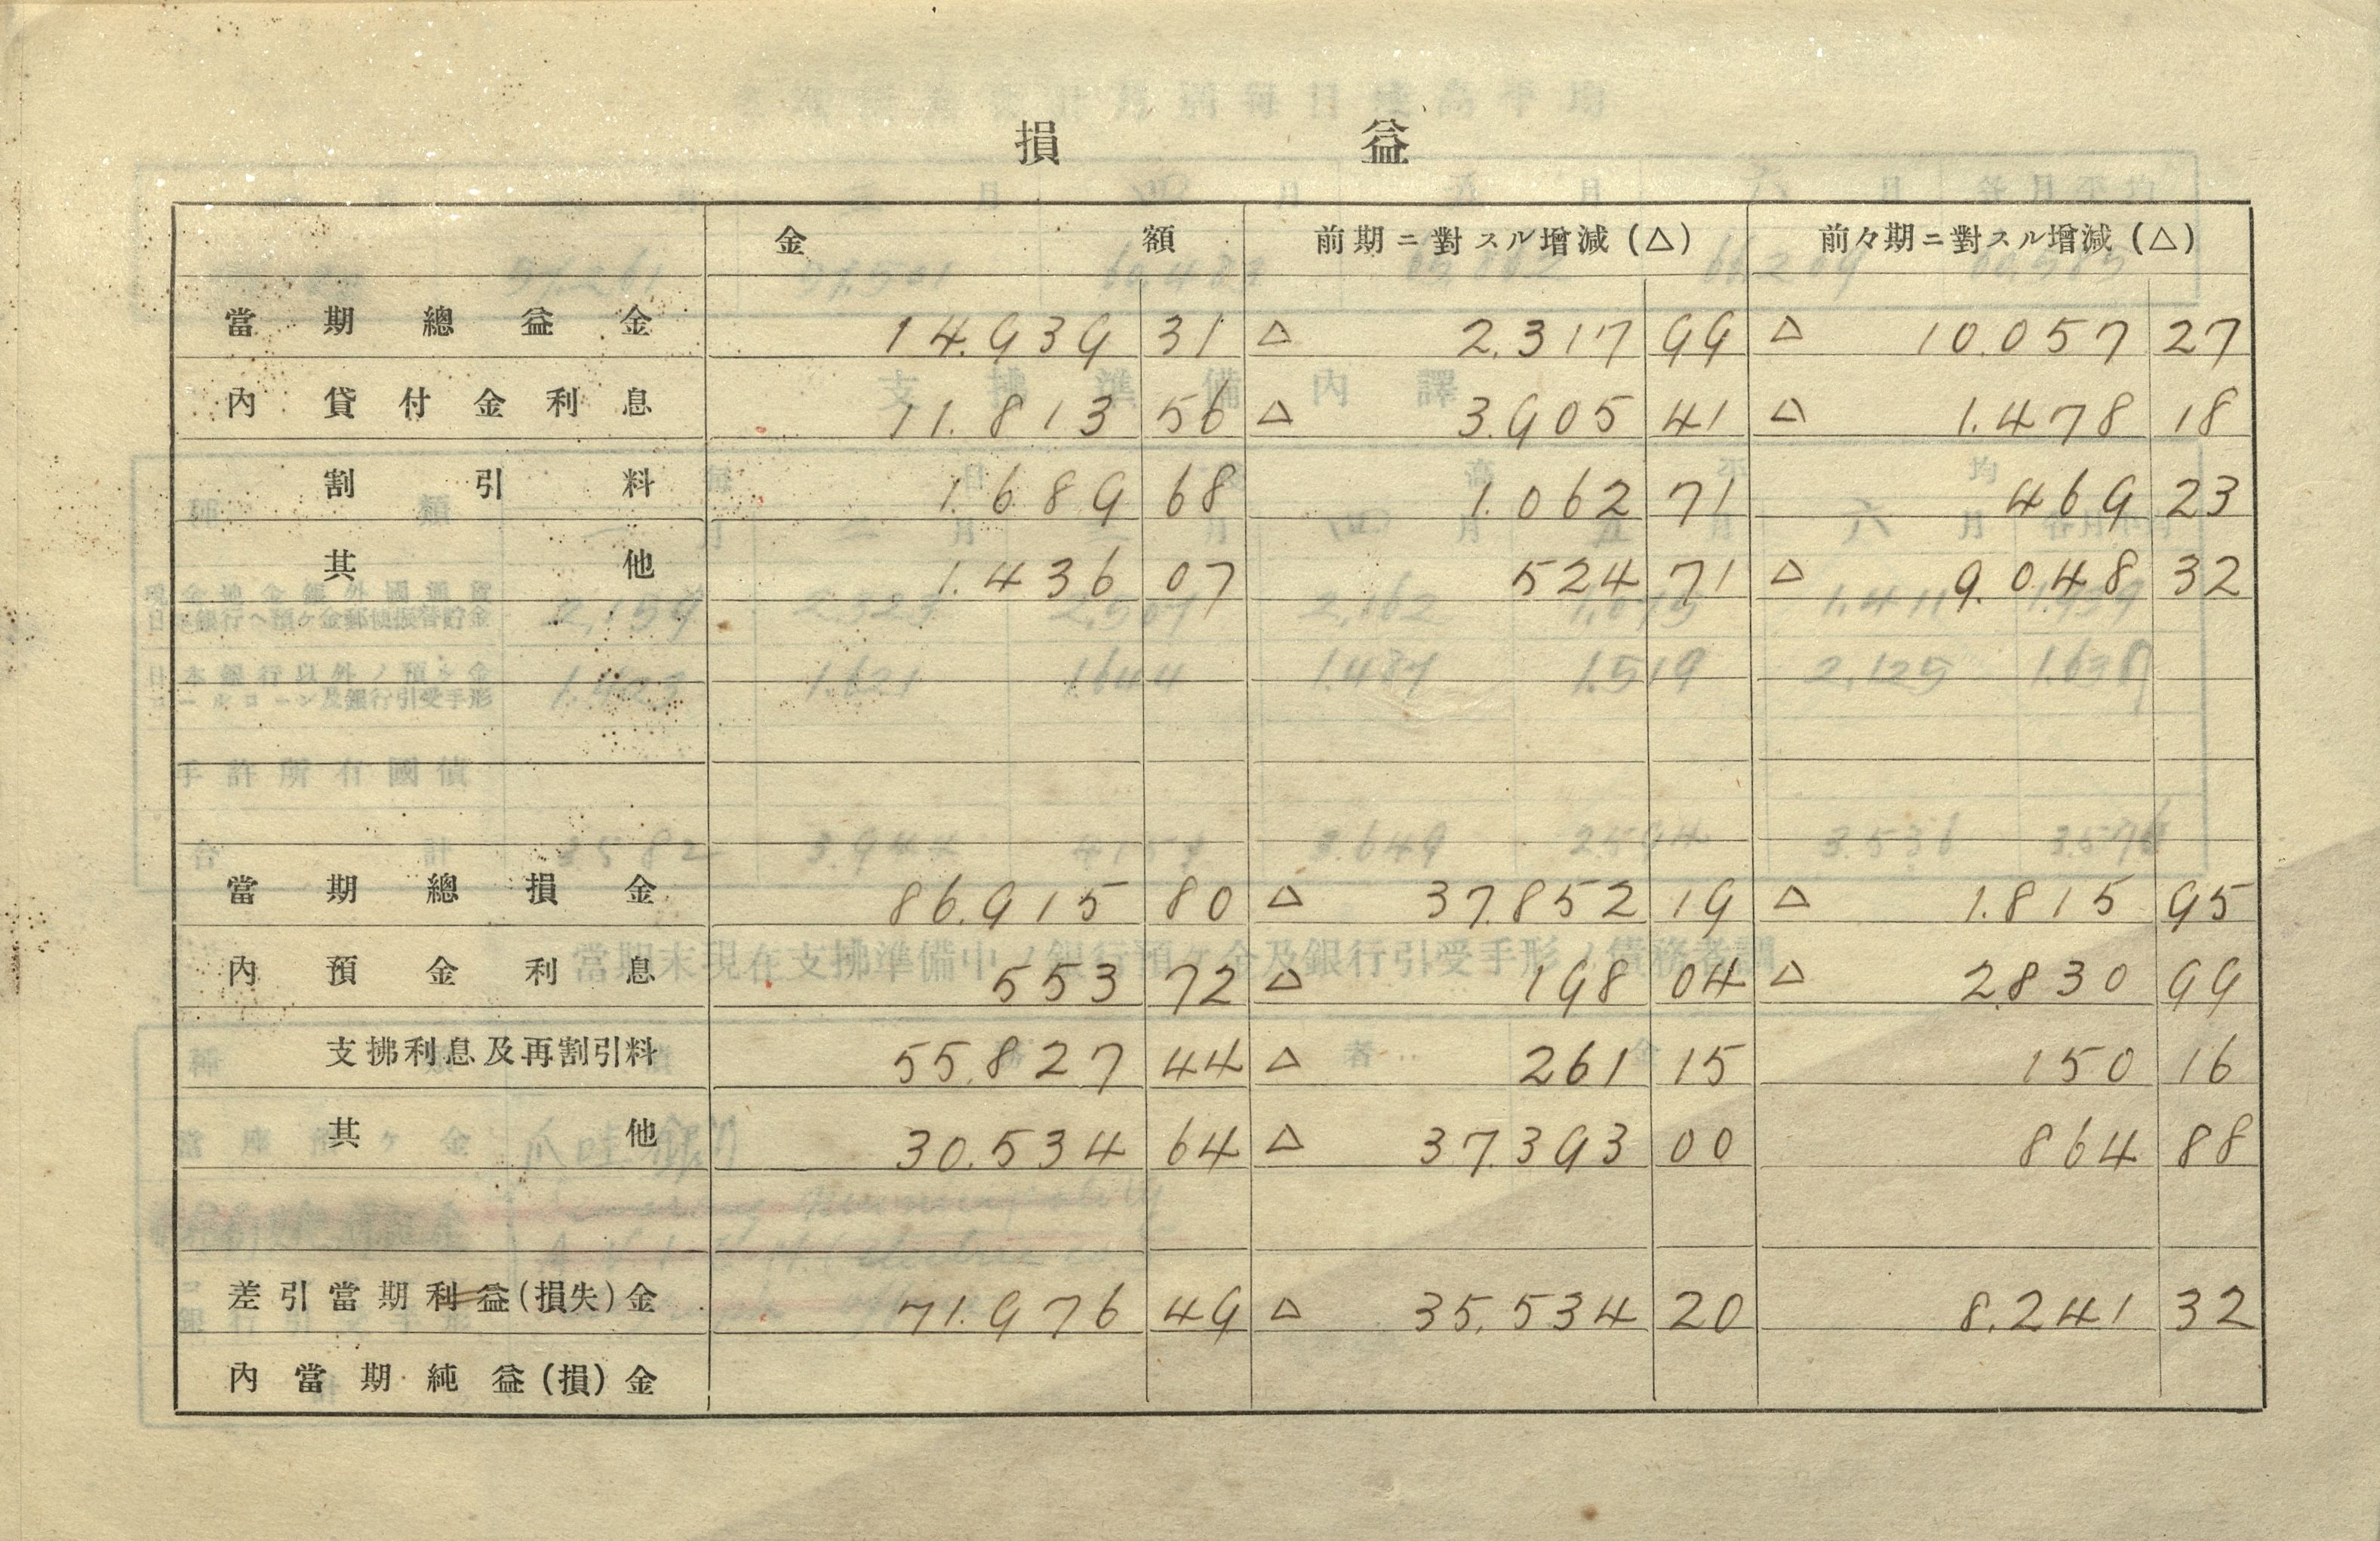 損益
金額 前期ニ對スル增減(△) 前々期ニ對スル增減(△)
當期總益金 14.939 31 △ 2.317 99 △ 10.057 27
內 貸付金利息 11.813 56 △ 3.905 41 △ 1.478 18
割引料 1.689 68 1.062 71 469 23
其他 1.436 07 524 71 △ 9.048 32
當期總損金 86.915 80 △ 37.852 19 △ 1.815 95
內 預金利息 553 72 △ 198 04 △ 2.830 99
支拂利息及再割引料 55.827 44 △ 261 15 150 16
其他 30.534 64 △ 37.393 00 864 88
差引當期利益(損失)金 71.976 49 △ 35.534 20 8.241 32
內當期純益(損)金